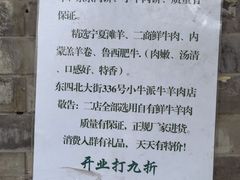 保证。
精选宁夏滩羊、二商鲜牛肉、内
蒙羔羊卷、鲁西肥牛.(肉嫩、汤清
、口感好、特香)。
东四北大街336号小牛派牛羊肉店
敬告:二店全部选用自有鲜牛羊肉
质量有保证,正规厂家进货。
消费人群有礼品,天天有特价!
开业打九折